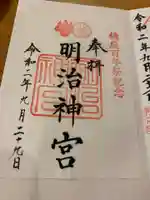 鎮座百年祭記念
奉拝
明治神宮
令和二年九月二十九日
令和二年九月二